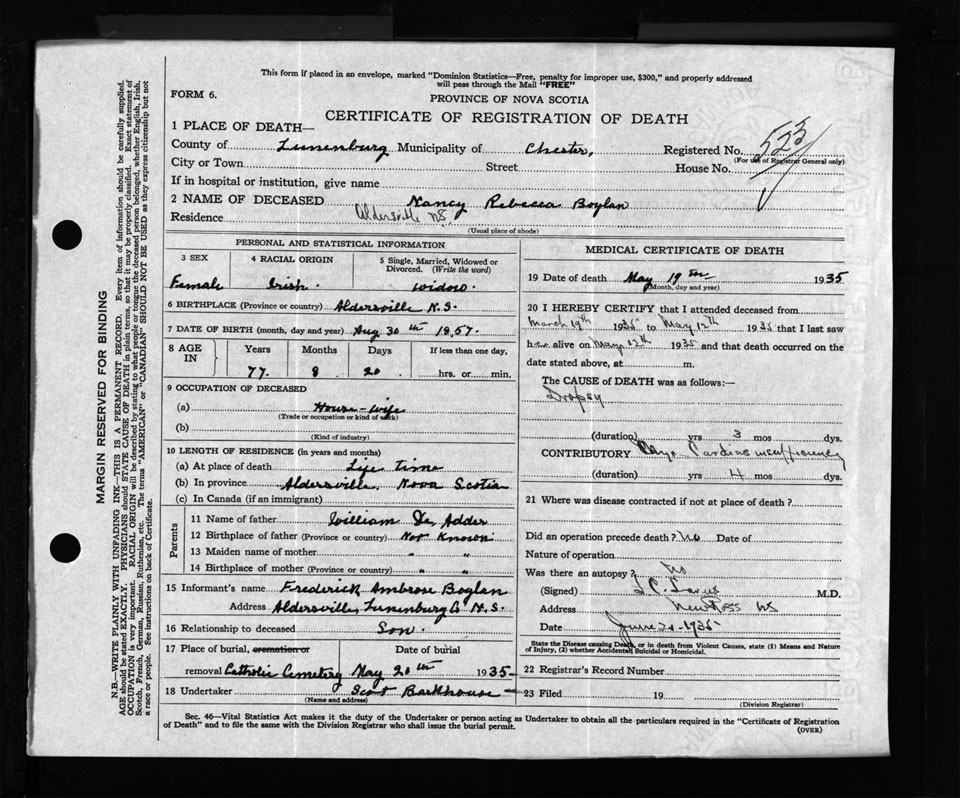 This form if placed in an envelope, marked "Dominion Statistics—Free, penalty for improper use, $300," and properly addressed
will pass through the Mail "FREE"
FORM 6.
PROVINCE OF NOVA SCOTIA
CERTIFICATE OF REGISTRATION OF DEATH
1 PLACE OF DEATH—
County of Lunenburg Municipality of Chester, Registered No. 523
(For use of Registrar General only)
City or Town Street House No.
If in hospital or institution, give name
2 NAME OF DECEASED Nancy Rebecca Boylan
Residence Aldersville NS
(Usual place of abode)
PERSONAL AND STATISTICAL INFORMATION
3 SEX 4 RACIAL ORIGIN 5 Single, Married, Widowed or
Divorced. (Write the word)
Female Irish. widow.
6 BIRTHPLACE (Province or country) Aldersville N.S.
7 DATE OF BIRTH (month, day and year) Aug 30th 1857.
8 AGE IN Years Months Days If less than one day,
77. 8 20. hrs. or min.
9 OCCUPATION OF DECEASED
(a) House-wife
(Trade or occupation or kind of work)
(b)
(Kind of industry)
10 LENGTH OF RESIDENCE (in years and months)
(a) At place of death Life time
(b) In province Aldersville, Nova Scotia
(c) In Canada (if an immigrant)
Parents
11 Name of father William Adder
12 Birthplace of father (Province or country) Not Known
13 Maiden name of mother " "
14 Birthplace of mother (Province or country) " "
15 Informant's name Frederick Ambrose Boylan
Address Aldersville, Lunenburg Co N.S.
16 Relationship to deceased Son.
17 Place of burial, cremation or Date of burial
removal Catholic Cemetery May 20th 1935
18 Undertaker Scott Barkhouse
(Name and address)
MEDICAL CERTIFICATE OF DEATH
19 Date of death May 19th 1935
(Month, day and year)
20 I HEREBY CERTIFY that I attended deceased from
March 19th 1935 to May 12th 1935 that I last saw
her alive on May 12th 1935 and that death occurred on the
date stated above, at m.
The CAUSE of DEATH was as follows:—
Dropsy
(duration) yrs 3 mos dys.
CONTRIBUTORY Cardiac insufficiency
(duration) yrs 4 mos dys.
21 Where was disease contracted if not at place of death?
Did an operation precede death? No Date of
Nature of operation
Was there an autopsy? No
(Signed) M.D.
Address New Ross NS
Date June 20 - 1935
State the Disease causing Death, or in death from Violent Causes, state (1) Means and Nature
of Injury, (2) whether Accidental, Suicidal or Homicidal.
22 Registrar's Record Number
23 Filed 19
(Division Registrar)
Sec. 46—Vital Statistics Act makes it the duty of the Undertaker or person acting as Undertaker to obtain all the particulars required in the "Certificate of Registration
of Death" and to file the same with the Division Registrar who shall issue the burial permit.
(OVER)
MARGIN RESERVED FOR BINDING
N.B.—WRITE PLAINLY WITH UNFADING INK—THIS IS A PERMANENT RECORD. Every item of information should be carefully supplied.
AGE should be stated EXACTLY. PHYSICIANS should STATE CAUSE OF DEATH in plain terms, so that it may be properly classified. Exact statement of
OCCUPATION is very important. RACIAL ORIGIN will be described by stating to what people or tongue the deceased person belonged, whether English, Irish,
Scotch, French, German, Russian, Ruthenian, etc. The terms "AMERICAN" or "CANADIAN" SHOULD NOT BE USED as they express citizenship but not
a race or people. See instructions on back of Certificate.